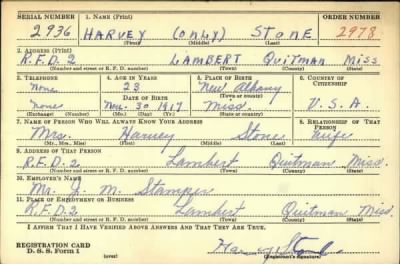 SERIAL NUMBER 1. NAME (Print) ORDER NUMBER
2936 HARVEY (ONLY) STONE 2978
(First) (Middle) (Last)
2. ADDRESS (Print)
R.F.D. 2 LAMBERT QUITMAN MISS
(Number and street or R. F. D. number) (Town) (County) (State)
3. TELEPHONE 4. AGE IN YEARS 5. PLACE OF BIRTH 6. COUNTRY OF CITIZENSHIP
None 23 New Albany
DATE OF BIRTH (Town or county)
None Nov. 30 1917 Miss. U.S.A.
(Exchange) (Number) (Mo.) (Day) (Yr.) (State or country)
7. NAME OF PERSON WHO WILL ALWAYS KNOW YOUR ADDRESS 8. RELATIONSHIP OF THAT PERSON
Mrs. Harvey Stone Wife
(Mr., Mrs., Miss) (First) (Middle) (Last)
9. ADDRESS OF THAT PERSON
R.F.D. 2 Lambert Quitman Miss.
(Number and street or R. F. D. number) (Town) (County) (State)
10. EMPLOYER'S NAME
Mr. J. M. Stamper
11. PLACE OF EMPLOYMENT OR BUSINESS
R.F.D. 2 Lambert Quitman Miss.
(Number and street or R. F. D. number) (Town) (County) (State)
I AFFIRM THAT I HAVE VERIFIED ABOVE ANSWERS AND THAT THEY ARE TRUE.
REGISTRATION CARD
D. S. S. Form 1 (over) Harvey Stone
(Registrant's signature)